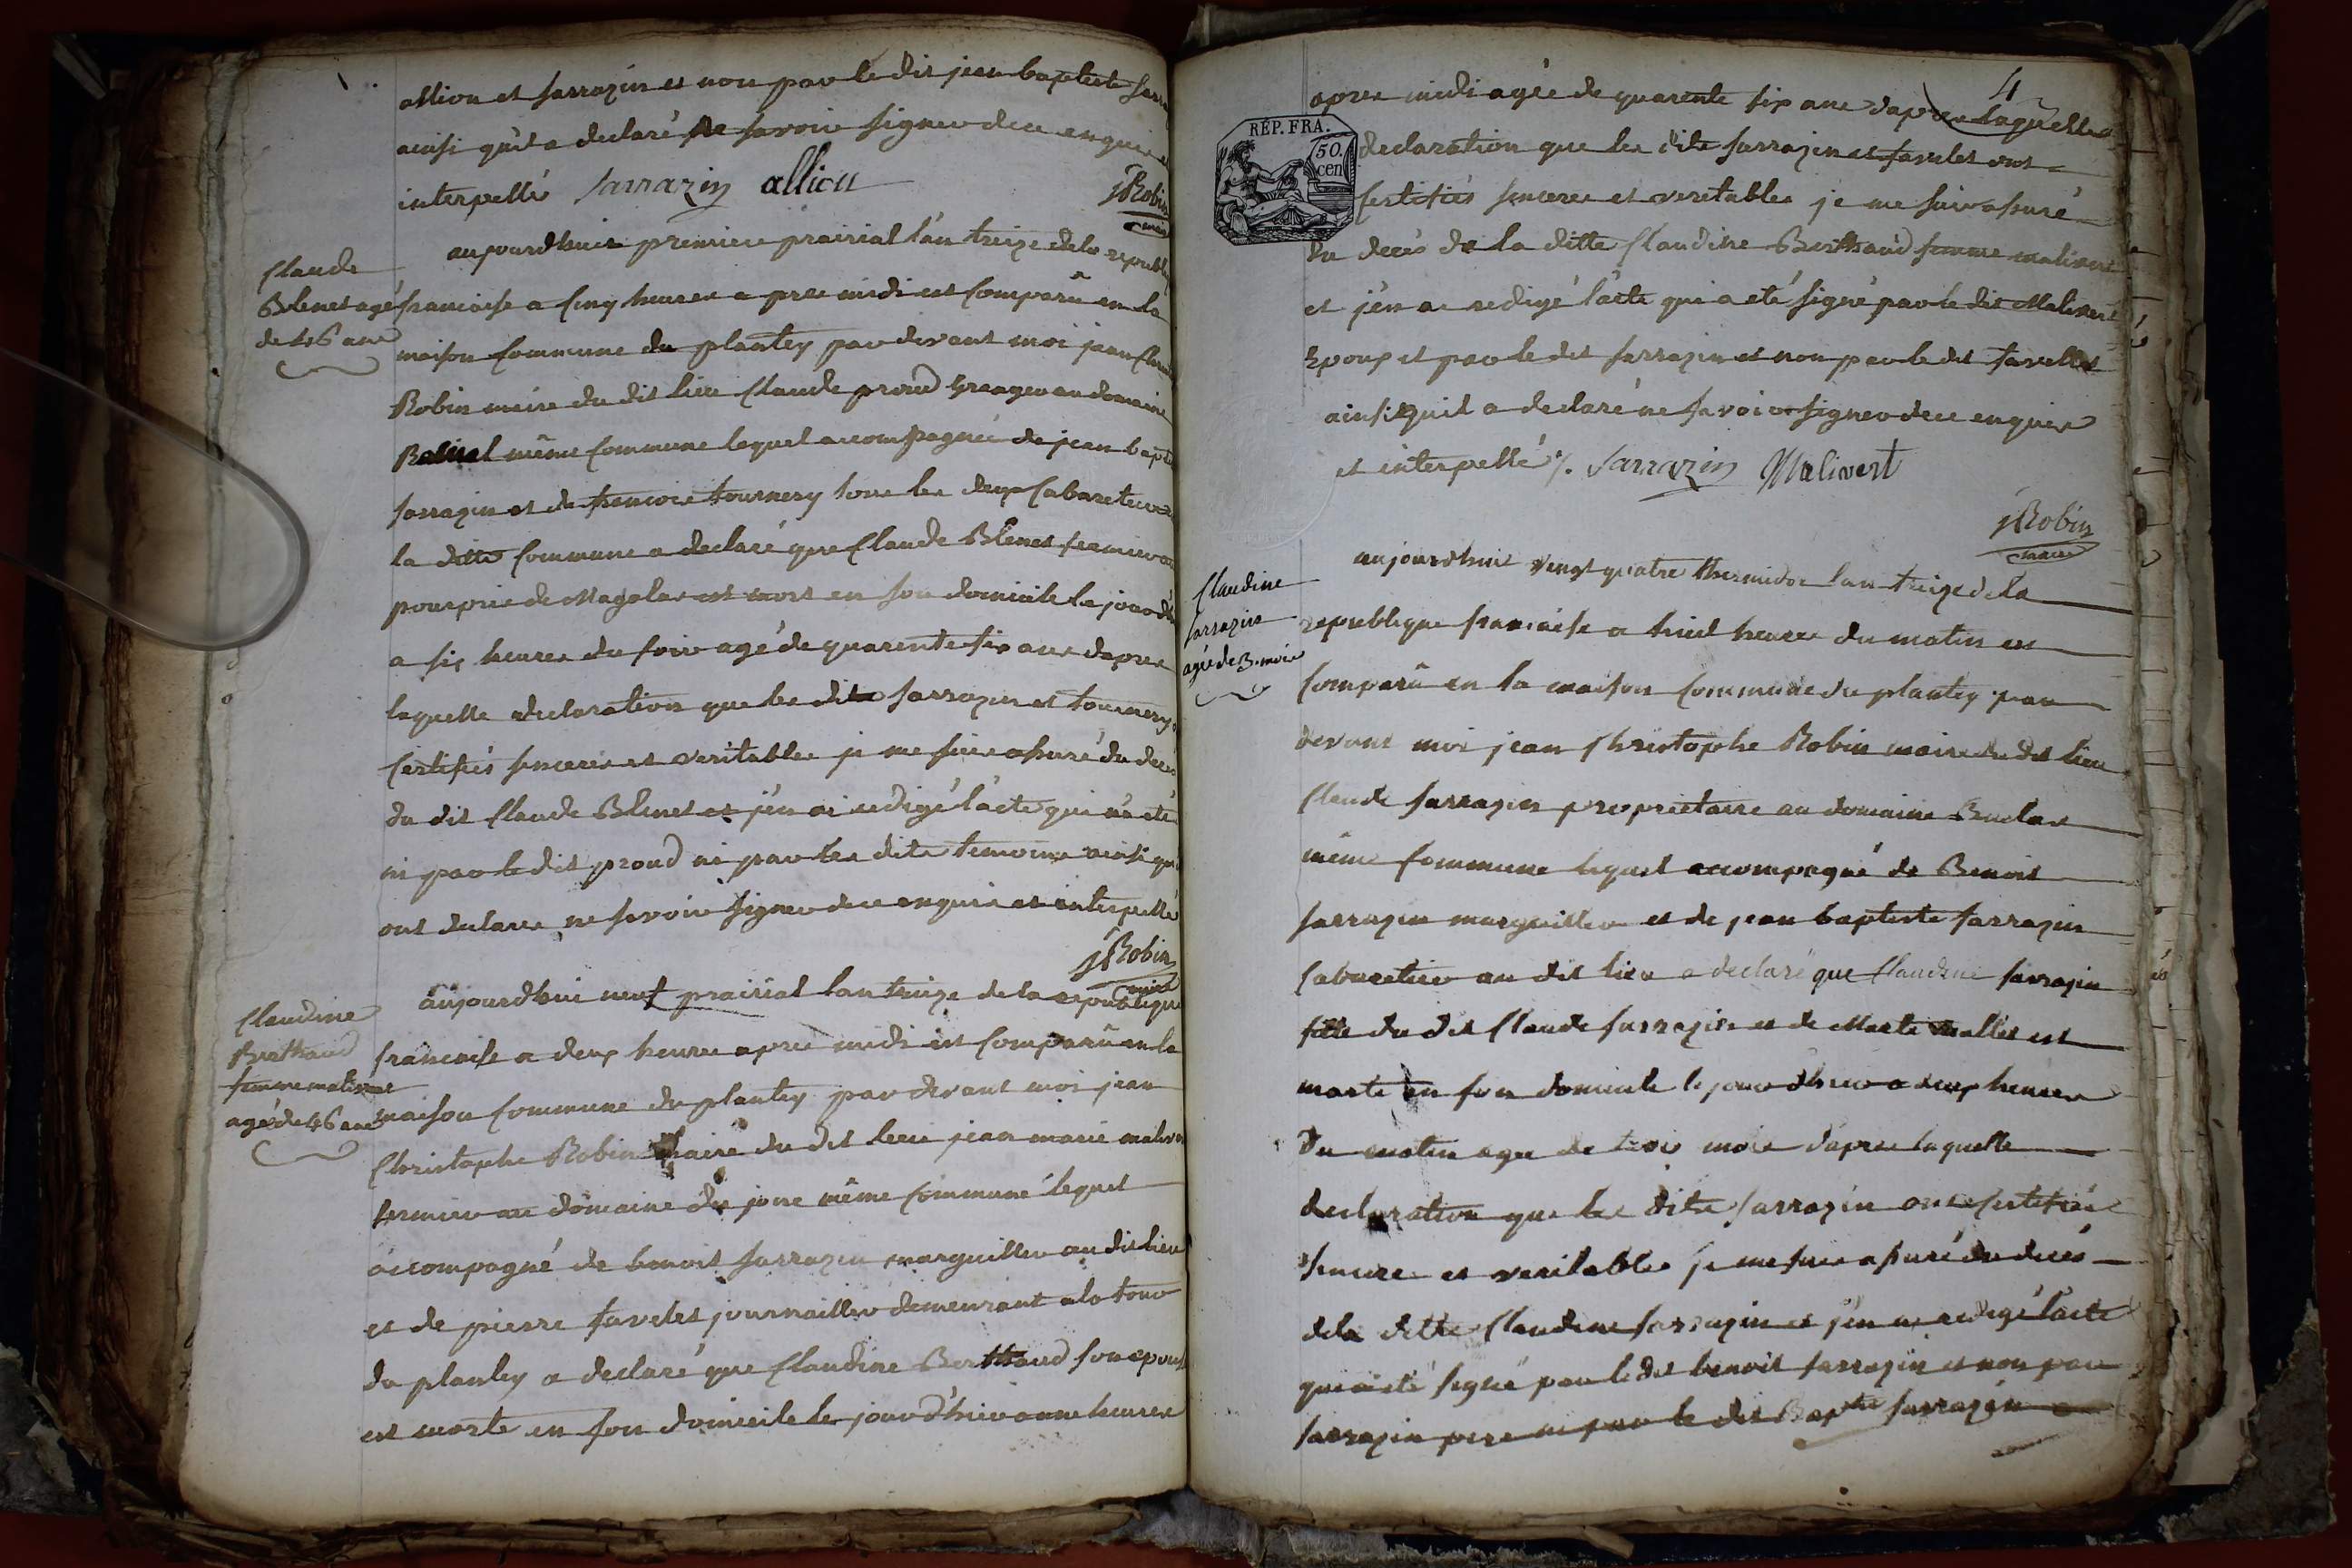 allion et sarrazin et non par le dit jean baptiste
ainsi quil a declaré ne savoir signer dece enquis
interpellé sarrazin alliou
jRobin
maire
Claude
Blenet agé
de 46 ans
aujourdhuis premier prairial lan treize dela republi
francaise a cinq heures apres midi est comparû en la
maison commune du plantey par devant moi jean
Robin maire du dit lieu Claude proud granger au domaine
même commune lequel accompagné de jean bapt
sarrazin et de francois tournery tous les deux cabaretiers
la ditte commune a declaré que Claude Blenet fermier
de est mort en son domicile le jour
a six heures du soir agé de quarente six ans dapres
laquelle declaration que les dits sarrazin et tournery
certifiés sinceres et veritables je me suis assuré du decé
du dit Claude Blenet et j'en ai redigé l'acte qui n'a eté
ni par le dit proud ni par les dits temoins ainsi qu
ont declarés ne savoir signer dece enquis et interpellé
jRobin
maire
Claudine
Berthaud
femme malivert
agé de 46 ans
aujourdhui neuf prairial lan treize de la republique
francaise a deux heures apres midi est comparû en la
maison commune du plantey par devant moi jean
Christophe Robin maire du dit lieu jean marie
fermier au domaine des même commune lequel
accompagné de benoit sarrazin marguillier au dit lieu
et de pierre favelet journaillier demeurant a la tour
du plantey a declaré que Claudine Berthaud son epouse
est morte en son domicile le jour d'hier onne heures
4
RÉP. FRA.
50.
cen
apres midi agée de quarente six ans dapres laquelle
declaration que les dits sarrazin et favelet ont
certifiés sinceres et veritables je me suis assuré
du decés de la ditte Claudine Berthaud femme malivert
et j'en ai redigé l'acte qui a eté signé par le dit Malivert
epoux et par le dit sarrazin et non par le dit favellet
ainsi quil a declaré ne savoir signer dece enquis
et interpellé %. Sarrazin Malivert
jRobin
maire
Claudine
sarrazin
agée de 3. mois
aujourdhuit vingt quatre thermidor lan treize de la
republique francaise a huit heures du matin est
comparû en la maison commune du plantey par
devant moi jean Christophe Robin maire du dit lieu
Claude sarrazin proprietaire au domaine
même commune lequel accompagné de Benoit
sarrazin marguillier et de jean baptiste sarrazin
cabaretier au dit lieu a declaré que Claudine sarrazin
fille du dit Claude sarrazin et de Marte mallet est
morte en son domicile le jour dhier a deux heures
du matin agée de trois mois dapres laquelle
declaration que les dits sarrazin ont certifiés
sincere et veritables je me suis assuré du decés
dela ditte Claudine sarrazin et j'en ai redigé l'acte
qui a eté signé par le dit benoit sarrazin et non par
sarrazin pere ni par le dit Bapte sarrazin